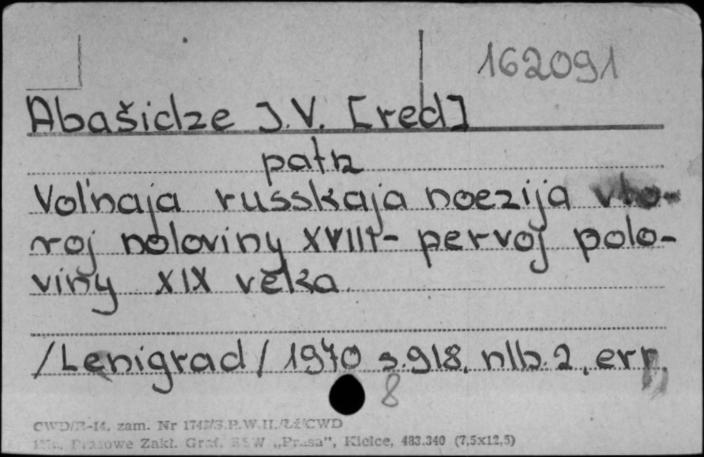 162091
Abašidze J.V. [red]
patrz
Vol'naja russkaja poezija vto-
roj poloviny XVIII- pervoj polo-
viny XIX veka
/Lenigrad/ 1970 s.918. nlb.2. err.
8
CWD/R-14, zam. Nr CWD
Zakł. Graf. RSW „Prasa”, Kielce, 483.340 (7,5x12,5)